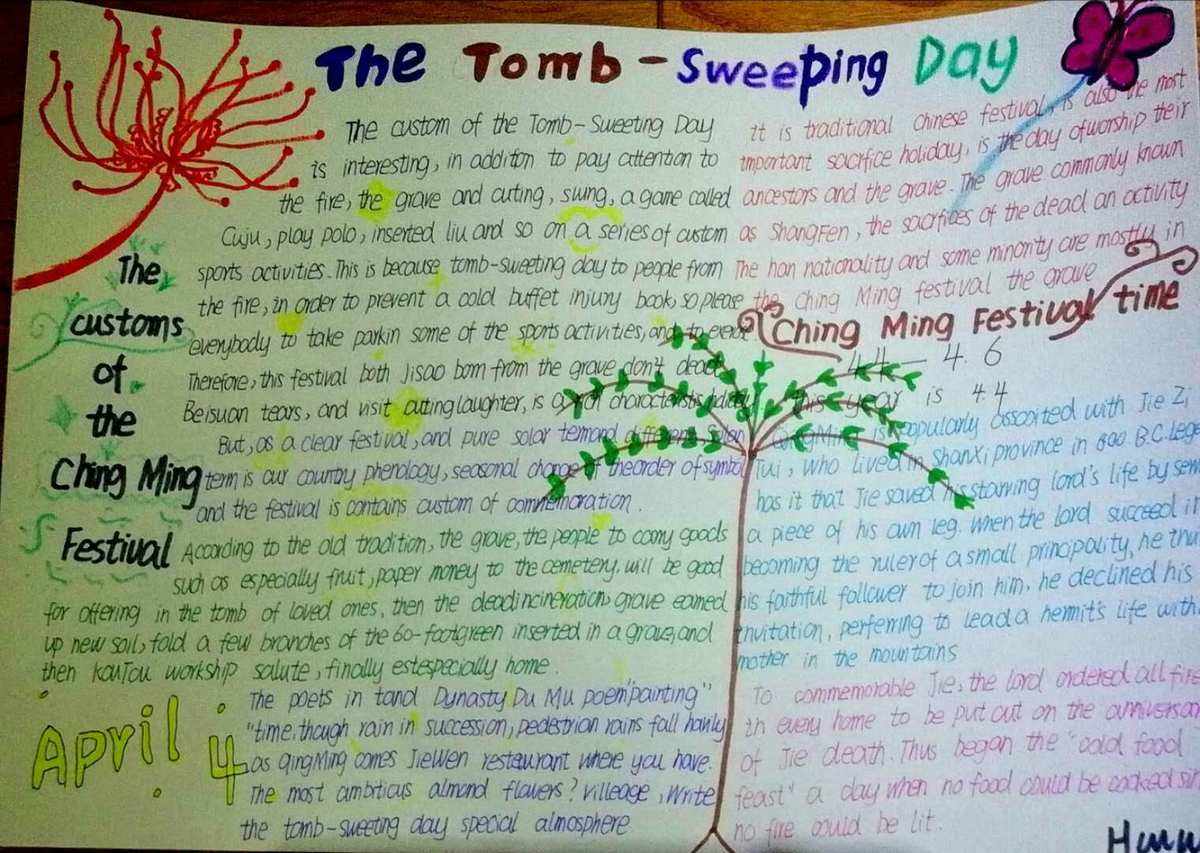 The Tomb-Sweeping Day
The custom of the Tomb-Sweeting Day
is interesting, in additon to pay attention to
the fire, the grave and cuting, swing, a game called
Cuju, play polo, inserted liu and so on a series of custom
sports activities. This is because tomb-sweeting day to people from
the fire, in order to prevent a cold buffet injury book, so please
everybody to take parkin some of the sports activities, and to
Therefore, this festival both Jisao born from the grave don't dead
Beisuan tears, and visit cuting laughter, is a characteristic
But, as a clear festival, and pure solar
term is our country phenology, seasonal change of theorder of symbol
and the festival is contains custom of commemoration.
According to the old tradition, the grave, the people to carry goods
such as especially fruit, paper money to the cemetery, will be good
for offering in the tomb of loved ones, then the deadincineration, grave earned
up new soil, fold a few branches of the 60-footgreen inserted in a grave, and
then KouTou workship salute, finally estespecially home.
The poets in tand Dynasty Du Mu poem"painting"
"time, though rain in succession, pedestrian rains fall hanly
as qingMing comes JieWen restaurant where you have.
The most ambitious almond flavers? Villeage, Write
the tomb-sweeting day special almosphere
The
customs
of
the
Ching Ming
Festival
April 4
it is traditional chinese festival, is also the most
important sacrifice holiday, is the day ofworship their
ancestors and the grave. The grave commonly known
as ShangFen, the sacrifices of the dead an activity
The han nationality and some minority are mostly in
the Ching Ming festival the grave
Ching Ming Festival time
4.4 — 4.6
this year is 4.4
QingMing is popularly associted with Jie Zi
Tui, who lived in Shanxi province in 600 B.C. lege
has it that Jie saved his starving lord's life by serv
a piece of his own leg. When the lord succeed in
becoming the ruler of a small principality, he thu
his faithful follower to join him. he declined his
invitation, perferring to lead a hermit's life with
mother in the mountains
To commemorable Jie, the lord ordered all fire
in every home to be put out on the anniversar
of Jie death. Thus began the "cold food
feast" a day when no food could be cooked sin
no fire could be lit.